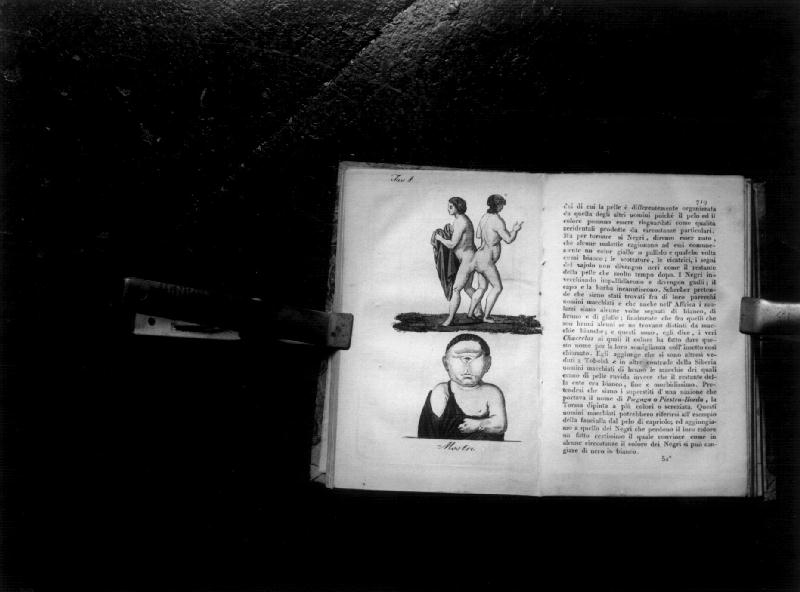 Tav. 1.
Mostri
719
dei di cui la pelle è differentemente organizzata
da quella degli altri uomini poichè il pelo ed il
colore possono essere risguardati come qualità
accidentali prodotte da circostanze particolari.
Ma per tornare ai Negri, diremo esser noto,
che alcune malattie cagionano ad essi comune-
mente un color giallo o pallido e qualche volta
quasi bianco; le scottature, le cicatrici, i segni
del vajolo non divengon neri come il restante
della pelle che molto tempo dopo. I Negri in-
vecchiando impallidiscono e divengon gialli; il
capo e la barba incanutiscono. Schreber preten-
de che siano stati trovati fra di loro parecchi
uomini macchiati e che anche nell' Affrica i
siano alcune volte segnati di bianco, di
bruno e di giallo; finalmente che fra quelli che
son bruni alcuni se ne trovano distinti da mac-
chie bianche; e questi sono, egli dice, i veri
Chacrelas ai quali il colore ha fatto dare que-
sto nome per la loro somiglianza coll' insetto così
chiamato. Egli aggiunge che si sono altresì ve-
duti a Tobolsk e in altre contrade della Siberia
uomini macchiati di bruno le macchie dei quali
erano di pelle ruvida invece che il restante del-
la cute era bianco, fine e morbidissimo. Pre-
tendesi che siano i superstiti d' una nazione che
portava il nome di Piegaga o Piestra-Horda, la
Torma dipinta a più colori o screziata. Questi
uomini macchiati potrebbero riferirsi all' esempio
della fanciulla dal pelo di capriolo; ed aggiungia-
mo a quello dei Negri che perdono il loro colore
un fatto certissimo il quale convince come in
alcune circostanze il colore dei Negri si può can-
giare di nero in bianco.